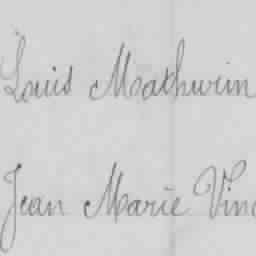 Louis Mathurin
Jean Marie Vinc